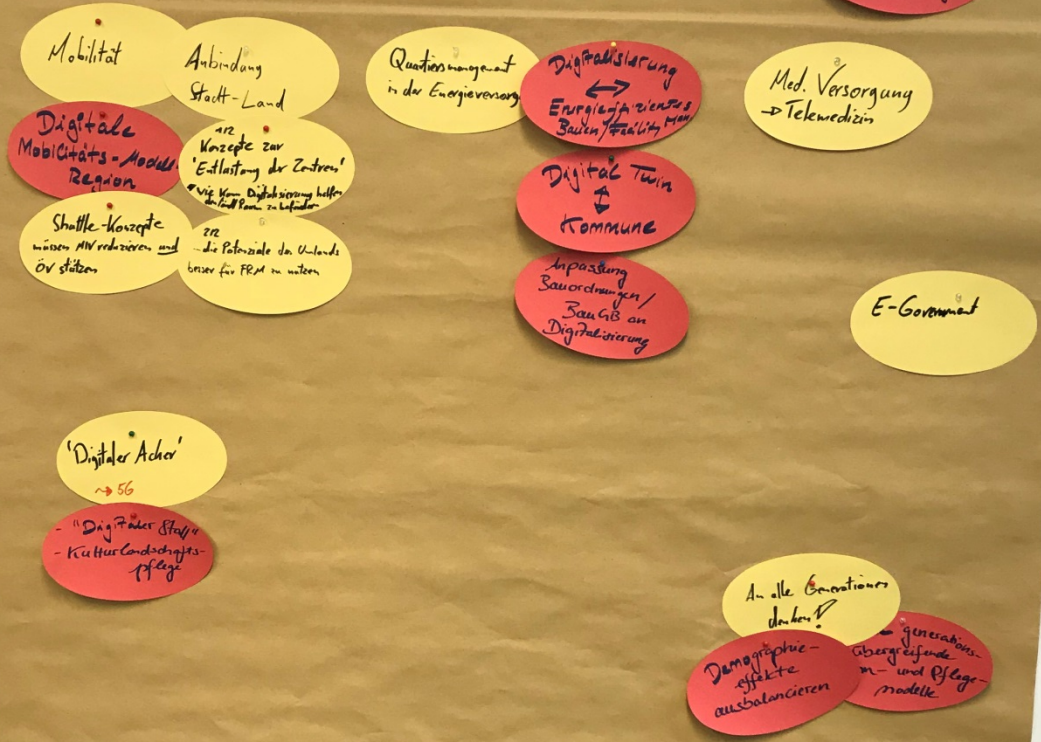 Mobilität
Anbindung
Stadt-Land
Digitale
Mobilitäts-Modell
Region
1/2
Konzepte zur
'Entlastung der Zentren'
Wie kann Digitalisierung helfen
Shuttle-Konzepte
müssen MIV reduzieren und
ÖV stützen
2/2
- die Potenziale des Umlands
besser für FRM zu nutzen
Quartiersmanagement
in der Energieversorg
Digitalisierung
↔
Energieeffizientes
Bauen/Facility Man
Digital Twin
↕
Kommune
Anpassung
Bauordnungen/
BauGB an
Digitalisierung
Med. Versorgung
→ Telemedizin
E-Government
'Digitaler Acker'
→ 5G
- "Digitaler Stall"
- Kulturlandschafts-
pflege
An alle Generationen
denken!
Demographie-
effekte
ausbalancieren
generations-
übergreifende
- und Pflege-
modelle